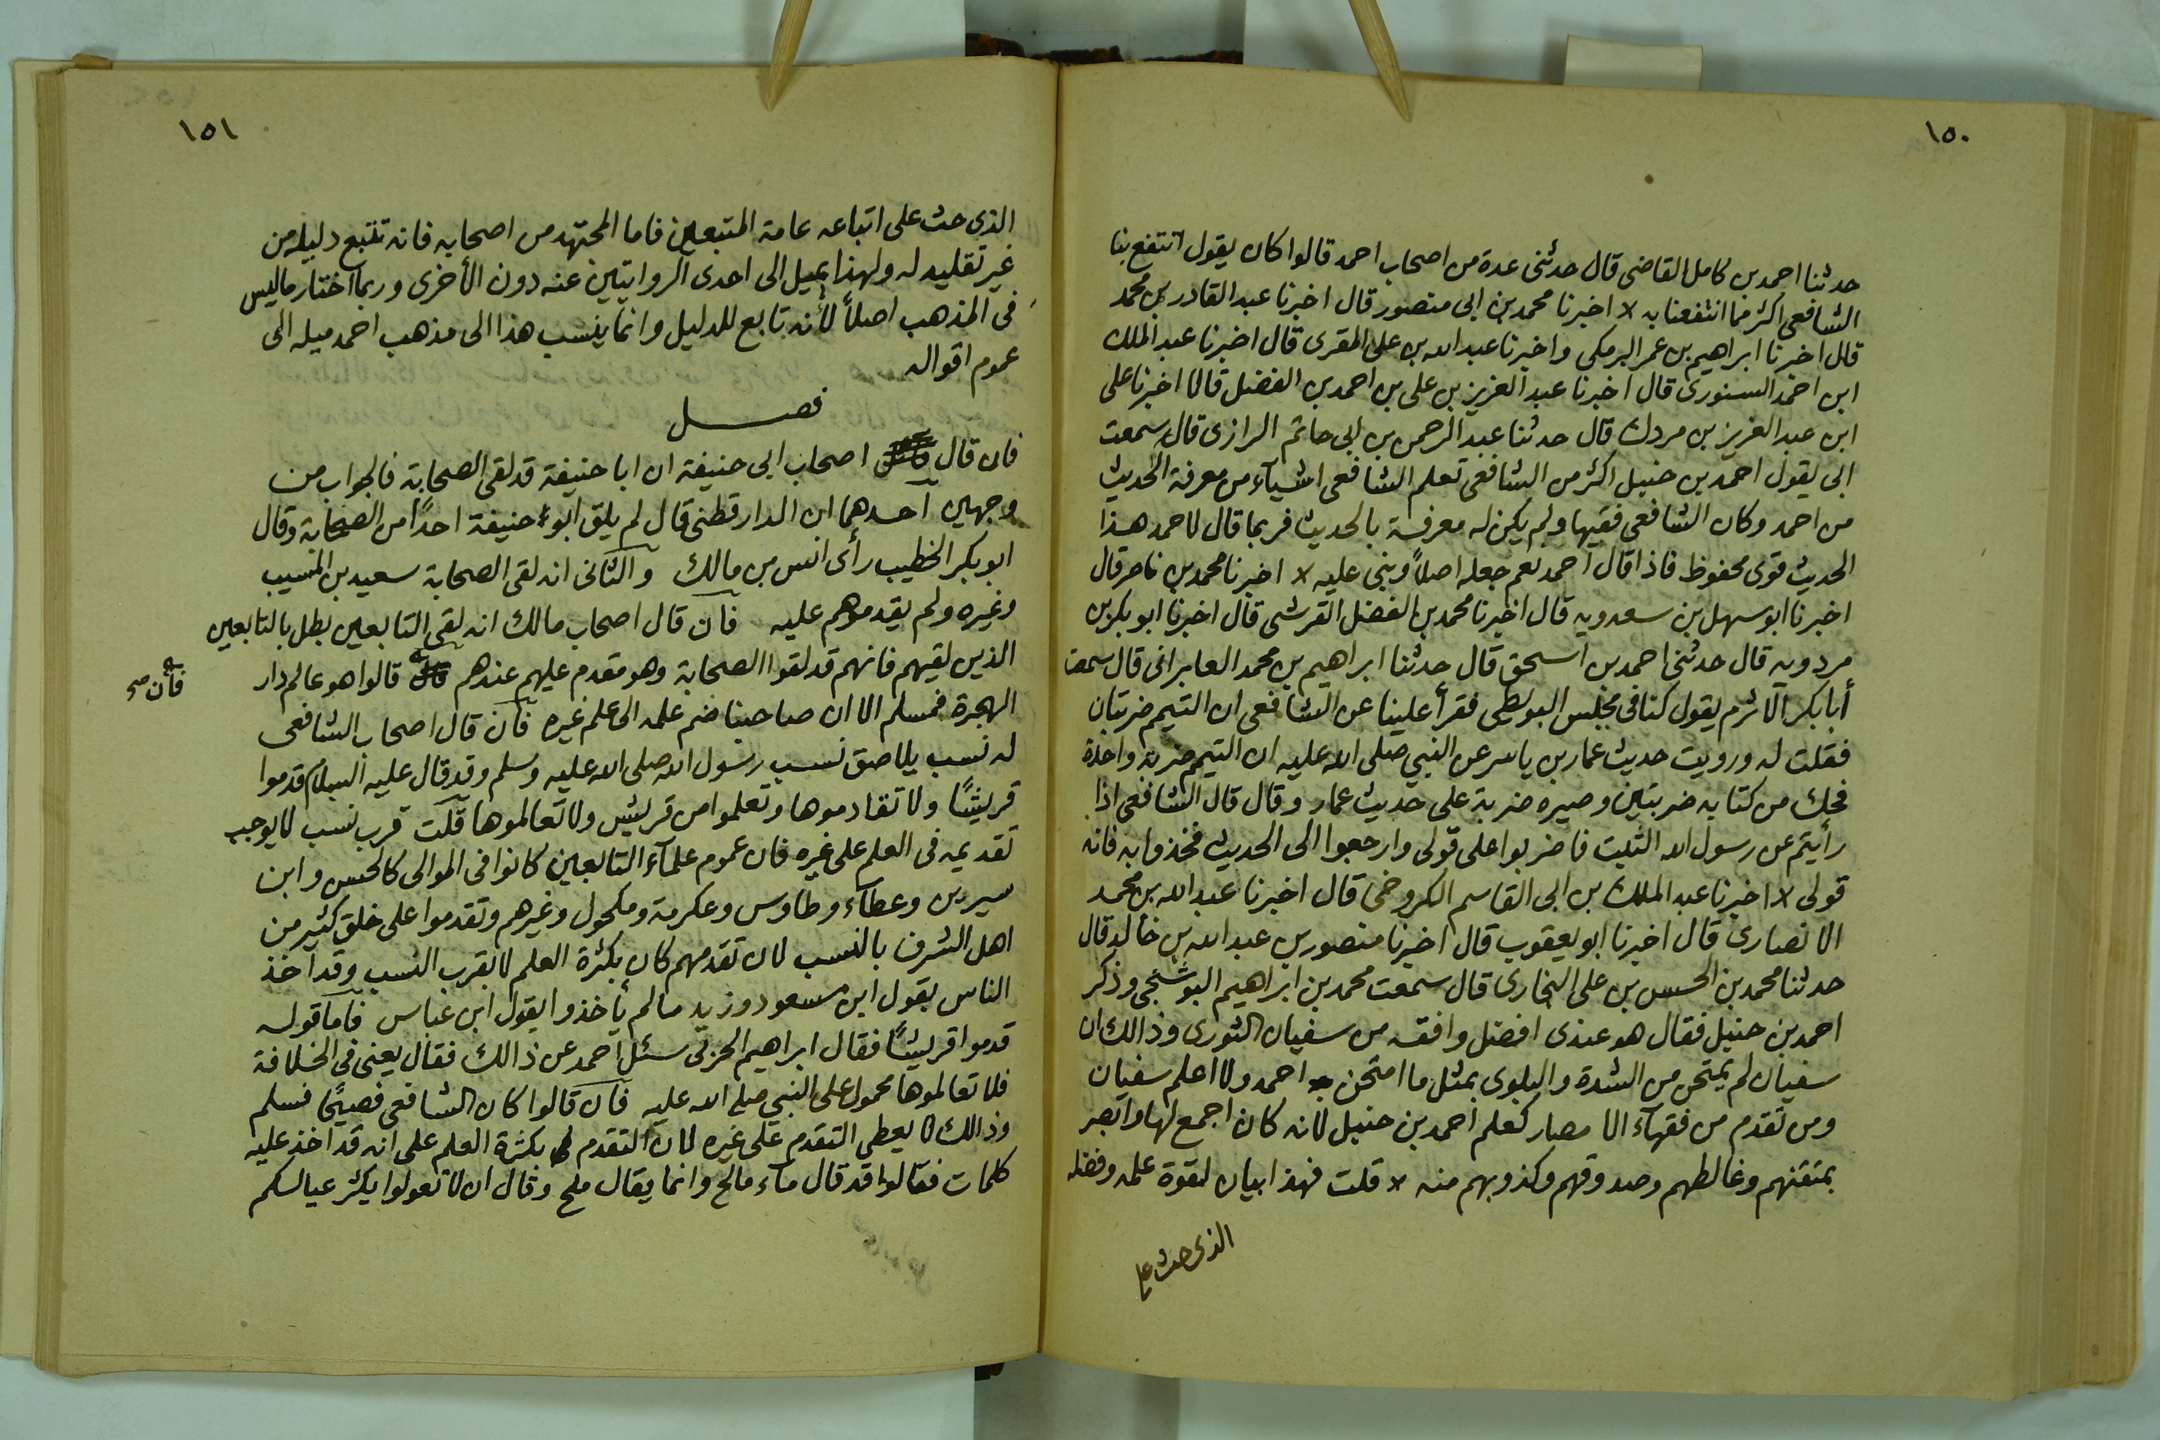 ١٥٠
حدثنا احمد بن كامل القاضى قال حدثنى عدة من اصحاب احمد قالوا كان يقول انتفع بنا
الشافعى اكثر مما انتفعنا به لا اخبرنا محمد بن ابى منصور قال اخبرنا عبد القادر بن محمد
قال اخبرنا ابراهيم بن عمر البرمكى واخبرنا عبد الله بن على المقرى قال اخبرنا عبد الملك
ابن احمد السنورى قال اخبرنا عبد العزيز بن على بن احمد بن الفضل قالا اخبرنا على
ابن عبد العزيز بن مردك قال حدثنا عبد الرحمن بن ابى حاتم الرازى قال سمعت
ابى يقول احمد بن حنبل اكثر من الشافعى تعلم الشافعى اشيآء من معرفة الحديث
من احمد وكان الشافعى فقيها ولم يكن له معرفة بالحديث فربما قال لاحمد هذا
الحديث قوى محفوظ فاذا قال احمد نعم جعله اصلاً وبنى عليه لا اخبرنا محمد بن ناصر قال
اخبرنا ابو سهل بن سعدويه قال اخبرنا محمد بن الفضل القرشى قال اخبرنا ابو بكر بن
مردويه قال حدثنى احمد بن اسحق قال حدثنا ابراهيم بن محمد العابرانى قال سمعت
أبا بكر الاثرم يقول كنا فى مجلس البويطى فقرأ علينا عن الشافعى ان التيمم ضربتان
فقلت له ورويت حديث عمار بن ياسر عن النبى صلى الله عليه ان التيمم ضربة واحدة
فحك من كتابه ضربتين وصيره ضربة على حديث عمار وقال قال الشافعى اذا
رأيتم عن رسول الله الثبت فاضربوا على قولى وارجعوا الى الحديث فخذوا به فانه
قولى لا اخبرنا عبد الملك بن ابى القاسم الكروخى قال اخبرنا عبد الله بن محمد
الانصارى قال اخبرنا ابو يعقوب قال اخبرنا منصور بن عبد الله بن خالد قال
حدثنا محمد بن الحسن بن على البخارى قال سمعت محمد بن ابراهيم البوشنجى وذكر
احمد بن حنبل فقال هو عندى افضل وافقه من سفيان الثورى وذالك ان
سفيان لم يمتحن من الشدة والبلوى بمثل ما امتحن به احمد ولا اعلم سفيان
ومن تقدم من فقهآء الامصار كعلم احمد بن حنبل لانه كان اجمع لها وابصر
بمتقنهم وغالطهم وصدوقهم وكذوبهم منه لا قلت فهذا بيان لقوة علمه وفضله
الذى حث على
١٥١
الذى حث على اتباعه عامة المتبعين فاما المجتهد من اصحابه فانه تتبع دليله من
غير تقليد له ولهذا يميل الى احدى الروايتين عنه دون الأخرى وربما اختار ماليس
فى المذهب اصلاً لأنه تابع للدليل وانما ينسب هذا الى مذهب احمد ميله الى
عموم اقواله
فصل
فان قال اصحاب ابى حنيفة ان ابا حنيفة قد لقى الصحابة فالجواب من
وجهين احدهما ان الدارقطنى قال لم يلق ابو حنيفة احداً من الصحابة وقال
ابو بكر الخطيب رأى انس بن مالك والثانى انه لقى الصحابة سعيد بن المسيب
وغيره ولم يقدموهم عليه فان قال اصحاب مالك انه لقى التابعين بطل بالتابعين
الذين لقيهم فانهم قد لقوا الصحابة وهو مقدم عليهم عندهم قالوا هو عالم دار
فأن صح
الهجرة فمسلم الا ان صاحبنا ضم علمه الى علم غيره فان قال اصحاب الشافعى
له نسب يلاصق نسب رسول الله صلى الله عليه وسلم وقد قال عليه السلام قدموا
قريشًا ولا تقادموها وتعلموا من قريش ولا تعالموها قلت قرب نسب لا يوجب
تقديمه فى العلم على غيره فان عموم علمآء التابعين كانوا فى الموالى كالحسن وابن
سيرين وعطآء وطاوس وعكرمة ومكحول وغيرهم وتقدموا على خلق كثير من
اهل الشرف بالنسب لان تقدمهم كان بكثرة العلم لا بقرب النسب وقد اخذ
الناس بقول ابن مسعود وزيد مالم يأخذوا بقول ابن عباس فاما قوله
قدموا قريشًا فقال ابراهيم الحربى سئل احمد عن ذالك فقال يعنى فى الخلافة
فلا تعالموها محمول على النبى صلى الله عليه فان قالوا كان الشافعى فصيحًا فسلم
وذالك لا يعطى التقدم على غيره لان التقدم بكثرة العلم على انه قد اخذ عليه
كلمات فقالوا قد قال مآء مالح وانما يقال ملح وقال ان لا تعولوا يكثر عيالكم